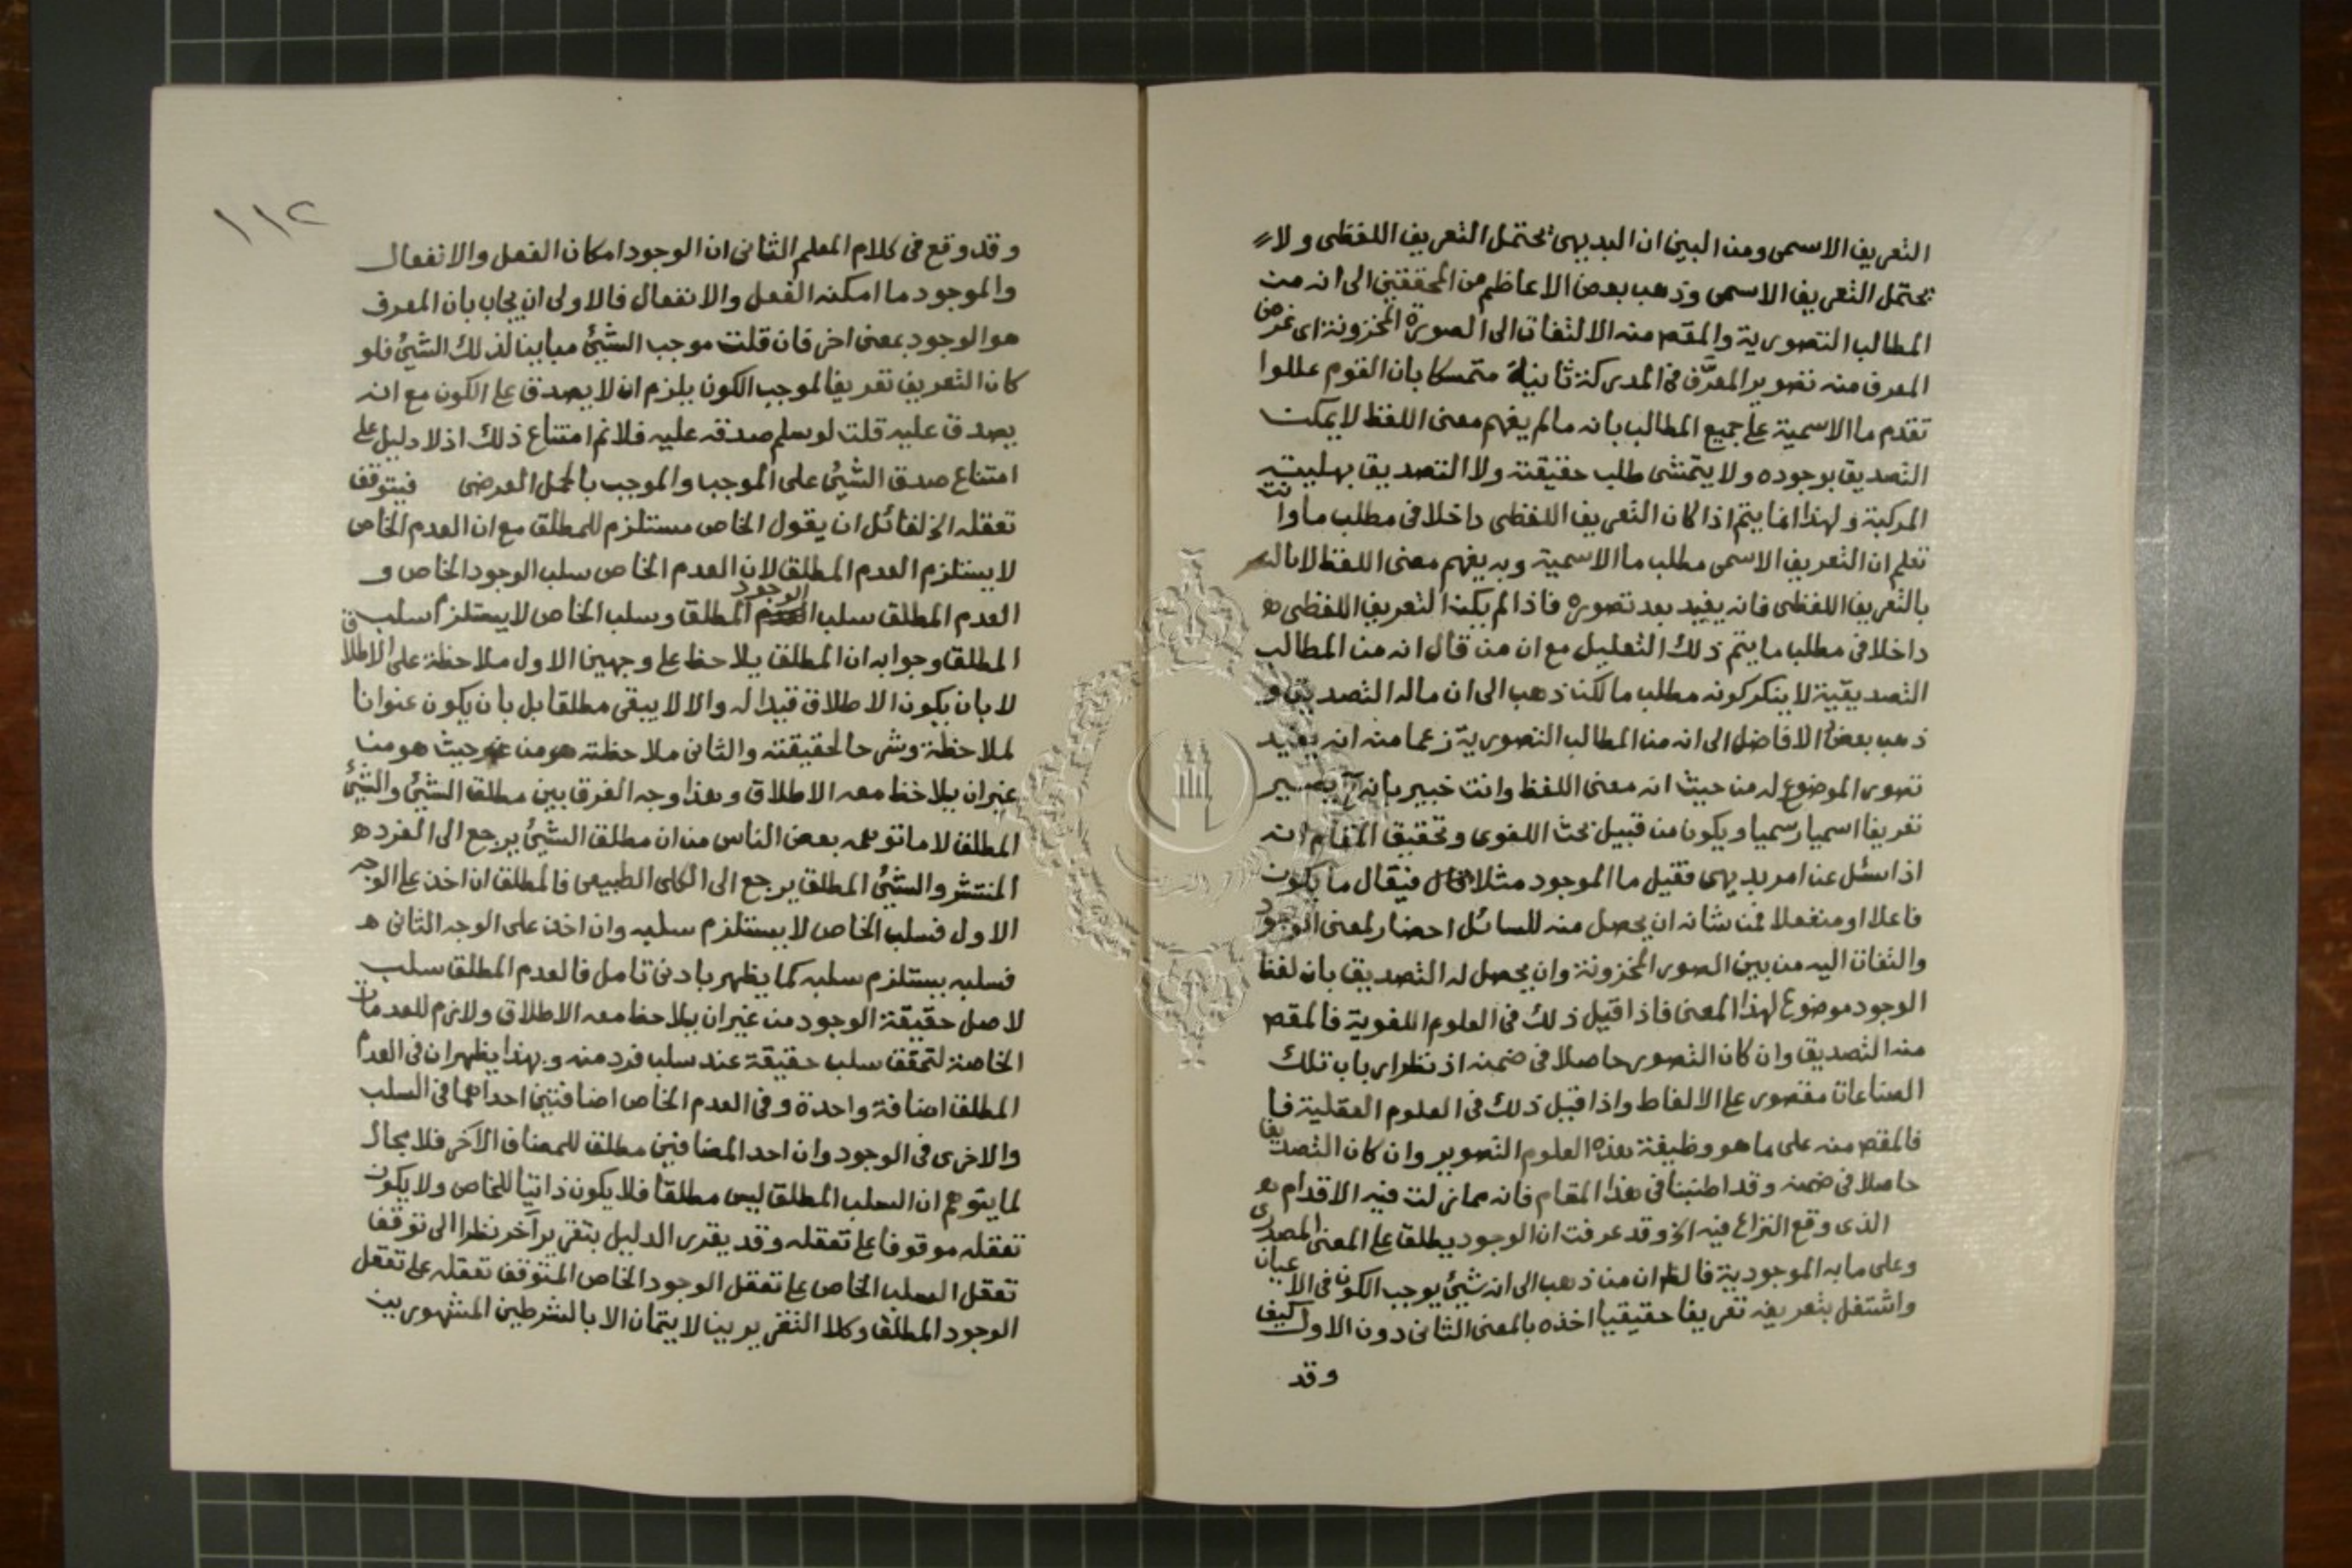 التعريف الاسمى ومن البين ان البديهى يحتمل التعريف اللفظى ولا
يحتمل التعريف الاسمى وذهب بعض الاعاظم من المحققين الى انه من
المطالب التصورية والمقصـ منه الالتفات الى الصورة المخزونة اى غرض
المعرف منه تصوير المعرَّف فى المدركة ثانيا متمسكا بان القوم عللوا
تقدم ما الاسمية على جميع المطالب بانه ما لم يفهم معنى اللفظ لا يمكن
التصديق بوجوده ولا يتمشى طلب حقيقته ولا التصديق بهليته
المركبة ولهذا انما يتم اذا كان التعريف اللفظى داخلا فى مطلب ما وانت
تعلم ان التعريف الاسمى مطلب ما الاسمية وبه يفهم معنى اللفظ لا
بالتعريف اللفظى فانه يفيد بعد تصوره فاذا لم يكن التعريف اللفظى ه
داخلا فى مطلب ما يتم ذلك التعليل مع ان من قال انه من المطالب
التصديقية لا ينكر كونه مطلب ما لكن ذهب الى ان ماله التصديق و
ذهب بعض الافاضل الى انه من المطالب التصورية زعما منه انه يفيد
تصور الموضوع له من حيث انه معنى اللفظ وانت خبير بانه يصير
تعريفا اسميا رسميا ويكون من قبيل بحث اللغوى وتحقيق المقام انه
اذا سئل عن امر بديهى فقيل ما الموجود مثلا فيقال ما يكون
فاعلا او منفعلا فمن شانه ان يحصل منه للسائل احضار لمعنى الوجود
والتفات اليه من بين الصور المخزونة وان يحصل له التصديق بان لفظ
الوجود موضوع لهذا المعنى فاذا قيل ذلك فى العلوم اللغوية فالمقصـ
منه التصديق وان كان التصور حاصلا فى ضمنه اذ نظر ارباب تلك
الصناعات مقصور على الالفاظ واذا قيل ذلك فى العلوم العقلية فا
فالمقصـ منه على ما هو وظيفة هذه العلوم التصوير وان كان التصديق
حاصلا فى ضمنه وقد اطنبنا فى هذا المقام فانه مما زلت فيه الاقدام
الذى وقع النزاع فيه الخ وقد عرفت ان الوجود يطلق على المعنى المصدرى
وعلى ما به الموجودية فالظـ ان من ذهب الى انه شيئ يوجب الكون فى الاعيان
واشتغل بتعريفه تعريفا حقيقيا اخذه بالمعنى الثانى دون الاول كيف
وقد
١١٢
وقد وقع فى كلام المعلم الثانى ان الوجود امكان الفعل والانفعال
والموجود ما امكنه الفعل والانفعال فالاولى ان يجاب بان المعرف
هو الوجود بمعنى اخر فان قلت موجب الشيئ مباين لذلك الشيئ فلو
كان التعريف تعريفا لموجب الكون يلزم ان لا يصدق على الكون مع انه
يصدق عليه قلت لو سلم صدقه عليه فلا نم امتناع ذلك اذ لا دليل على
امتناع صدق الشيئ على الموجب والموجب بالحمل العرضى فيتوقف
تعقله الخ لقائل ان يقول الخاص مستلزم للمطلق مع ان العدم الخاص
لا يستلزم العدم المطلق لان العدم الخاص سلب الوجود الخاص و
العدم المطلق سلب الوجود المطلق وسلب الخاص لا يستلزم سلب
المطلق وجوابه ان المطلق يلاحظ على وجهين الاول ملاحظة على الاطلاق
لا بان يكون الاطلاق قيدا له والا لا يبقى مطلقا بل بان يكون عنوانا
لملاحظة وشرحا لحقيقته والثانى ملاحظته من حيث هو من
غير ان يلاحظ معه الاطلاق وهذا وجه الفرق بين مطلق الشيئ والشيئ
المطلق لا ما توهمه بعض الناس من ان مطلق الشيئ يرجع الى الفرد ه
المنتشر والشيئ المطلق يرجع الى الكلى الطبيعى فالمطلق ان اخذ على الوجه
الاول فسلب الخاص لا يستلزم سلبه وان اخذ على الوجه الثانى ه
فسلبه يستلزم سلبه كما يظهر بادنى تامل فالعدم المطلق سلب
لاصل حقيقة الوجود من غير ان يلاحظ معه الاطلاق ولازم للعدمات
الخاصة لتحقق سلب حقيقة عند سلب فرد منه وبهذا يظهر ان فى العدم
المطلق اضافة واحدة وفى العدم الخاص اضافتين احداهما فى السلب
والاخرى فى الوجود وان احد المضافين مطلق للمضاف الآخر فلا مجال
لما يتوهم ان السلب المطلق ليس مطلقا فلا يكون ذاتيا للخاص ولا يكون
تعقله موقوفا على تعقله وقد يقرر الدليل بتقرير آخر نظرا الى توقف
تعقل السلب الخاص على تعقل الوجود الخاص المتوقف تعقله على تعقل
الوجود المطلق وكلا التقريرين لا يتمان الا بالشرطين المشهورين